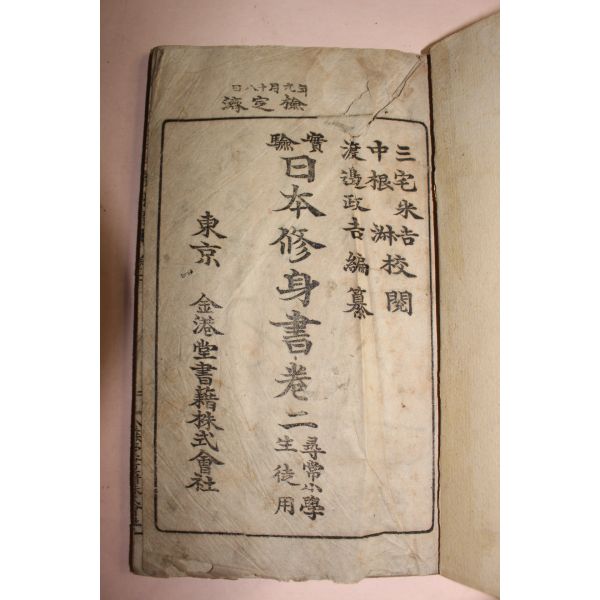 年九月十八日
檢定濟
三宅米吉
中根淋 校閱
渡邉政吉 編纂
實驗
日本修身書卷二
尋常小學
生徒用
東京 金港堂書籍株式會社